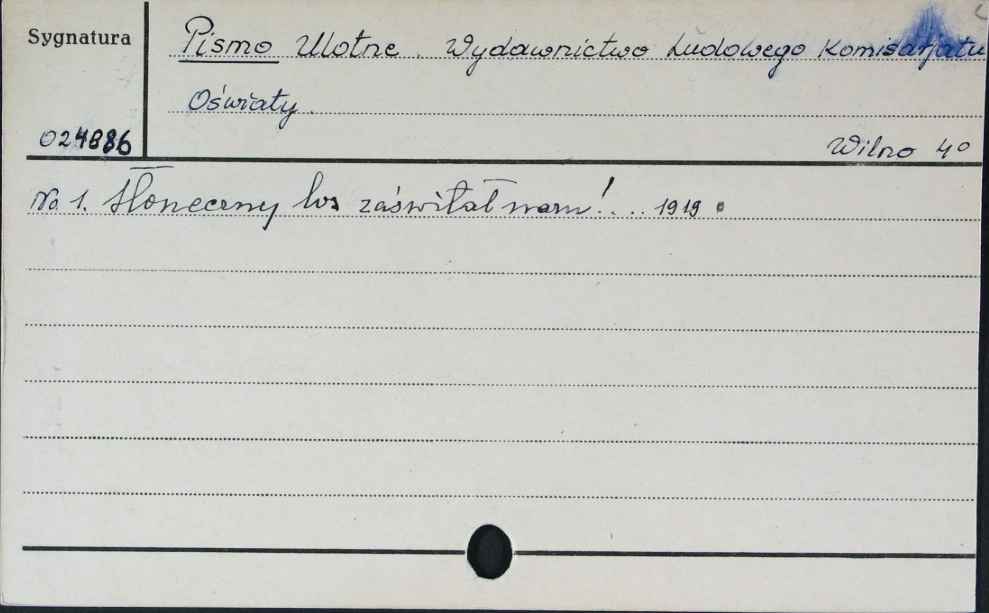 Sygnatura
Pismo Ulotne. Wydawnictwo Ludowego Komisarjatu
Oświaty.
024886
Wilno 4°
No 1. Słoneczny los zaświtał nam!... 1919